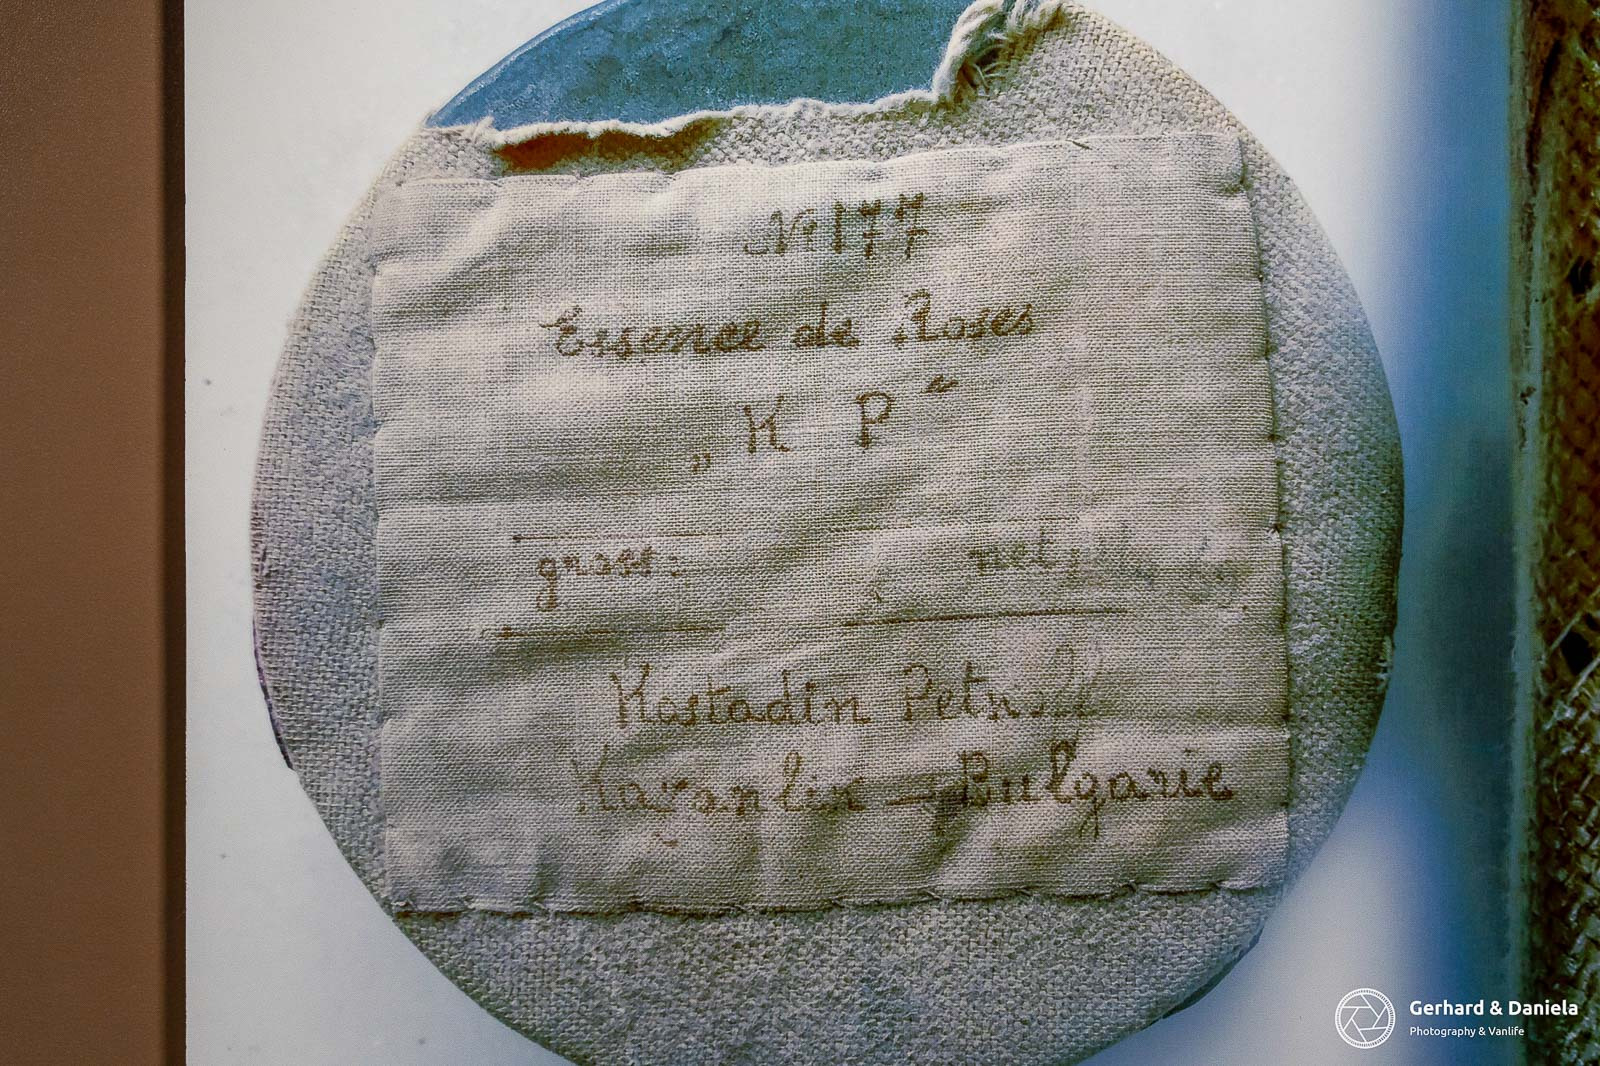 № 177
Essence de Roses
„K P“
gross: net:
Kostadin
Karanlin - Bulgarie
Gerhard & Daniela
Photography & Vanlife